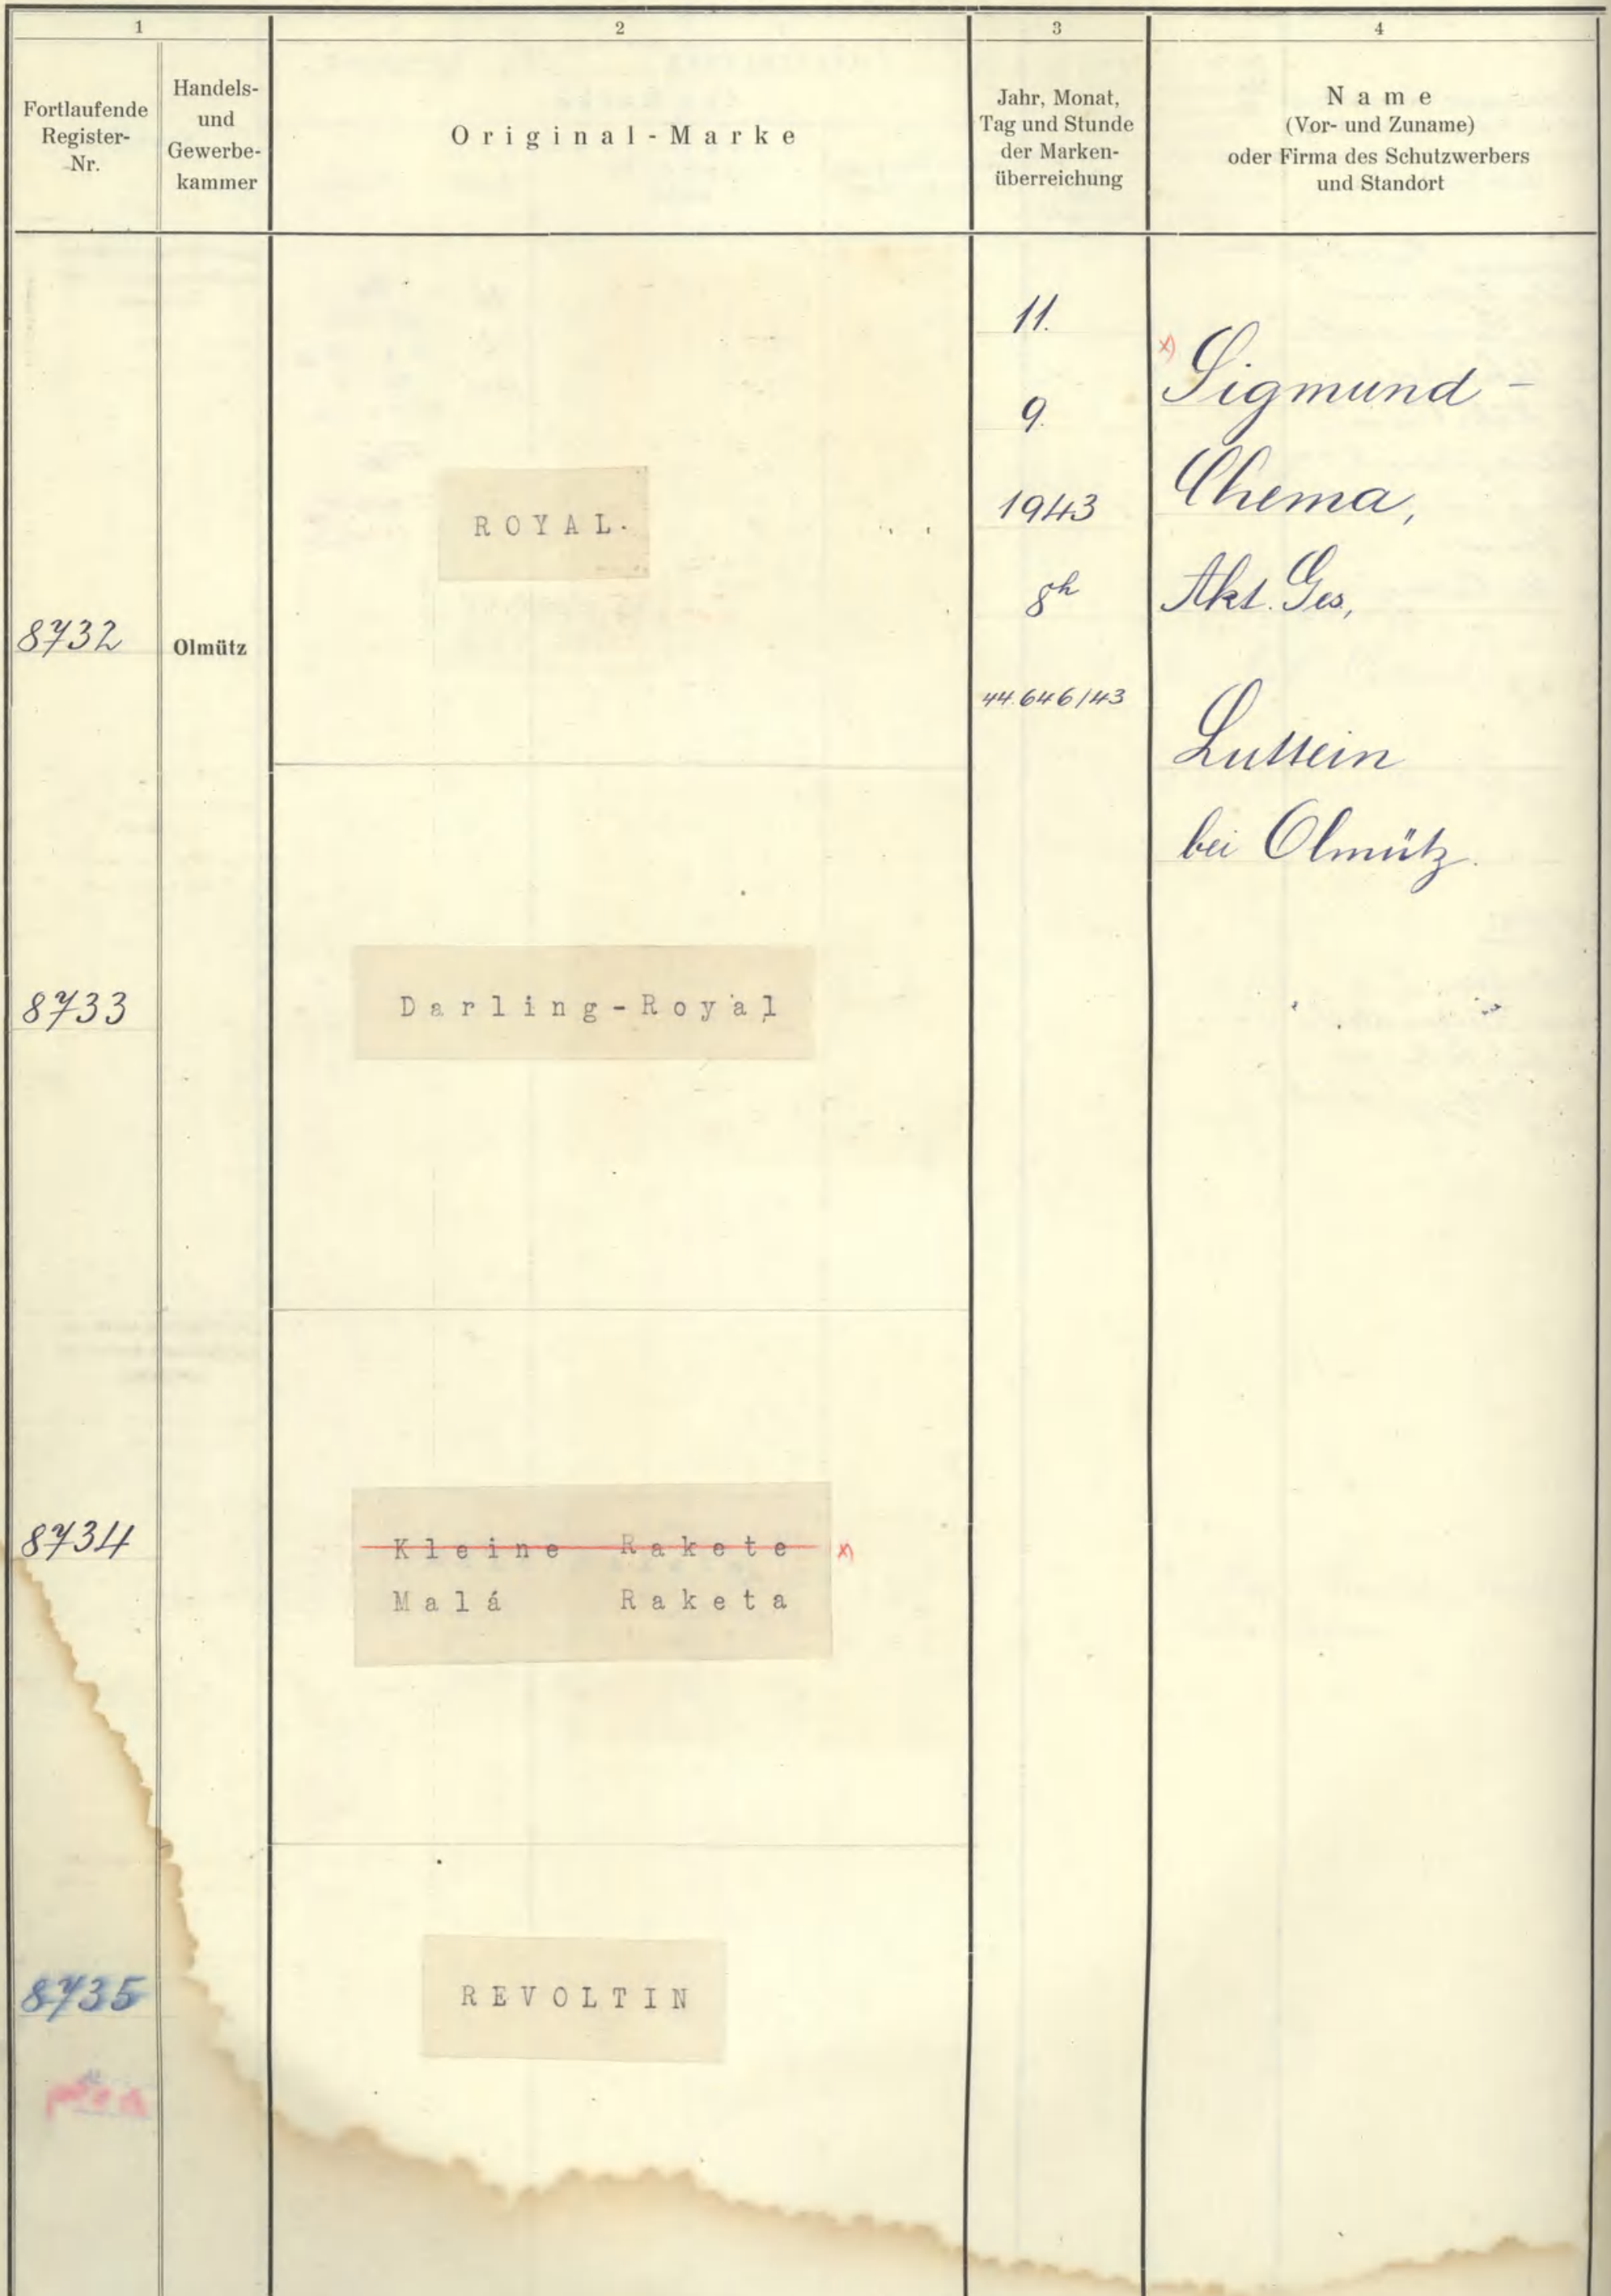 1
2
3
4
Fortlaufende
Register-
Nr.
Handels-
und
Gewerbe-
kammer
Original-Marke
Jahr, Monat,
Tag und Stunde
der Marken-
überreichung
Name
(Vor- und Zuname)
oder Firma des Schutzwerbers
und Standort
8732
Olmütz
ROYAL.
11.
9.
1943
8h
44.646/43
x)
Sigmund-
Chema,
Akt. Ges,
Luttein
bei Olmütz.
8733
Darling-Royal
8734
Kleine Rakete x)
Malá Raketa
8735
REVOLTIN